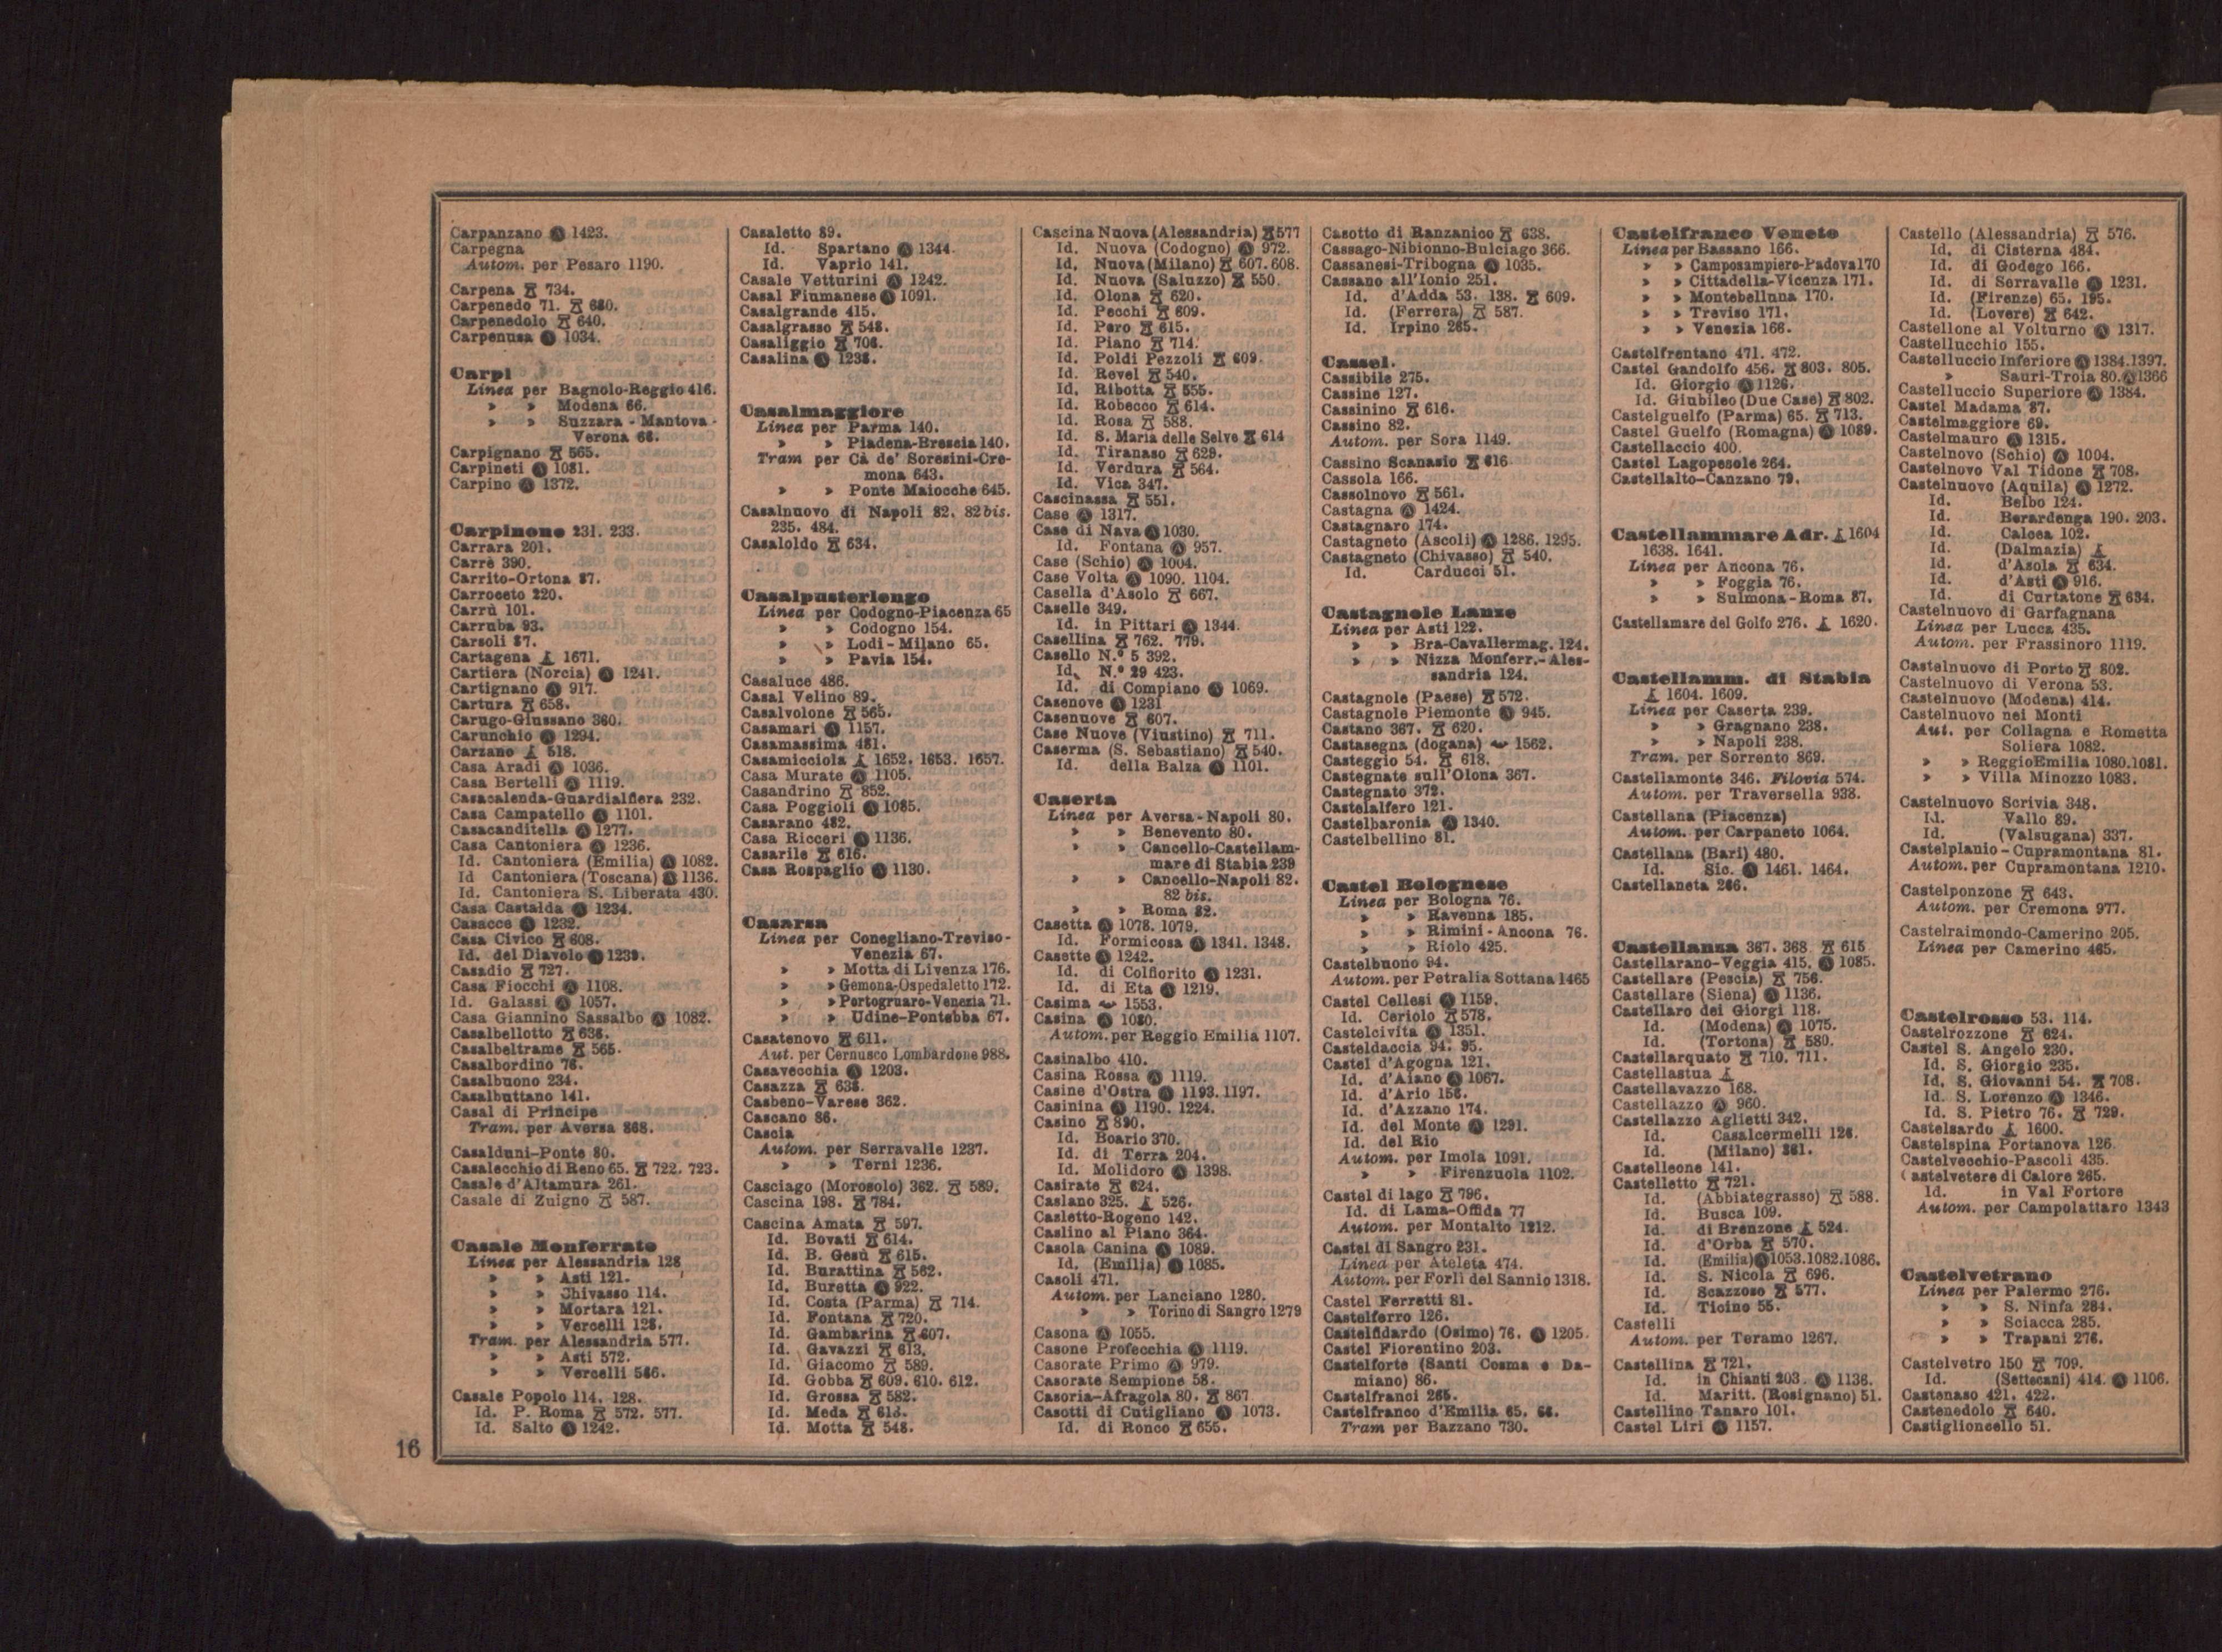 Carpanzano Ⓐ 1423.
Carpegna
Autom. per Pesaro 1190.
Carpena 734.
Carpenedo 71. 680.
Carpenedolo 640.
Carpenusa Ⓐ 1034.
Carpi
Linea per Bagnolo-Reggio 416.
» » Modena 66.
» » Suzzara - Mantova -
Verona 66.
Carpignano 565.
Carpineti Ⓐ 1081.
Carpino Ⓐ 1372.
Carpinone 231. 233.
Carrara 201.
Carrè 390.
Carrito-Ortona 87.
Carroceto 220.
Carrù 101.
Carruba 93.
Carsoli 87.
Cartagena 1671.
Cartiera (Norcia) Ⓐ 1241.
Cartignano Ⓐ 917.
Cartura 658.
Carugo-Giussano 360.
Carunchio Ⓐ 1294.
Carzano 518.
Casa Aradi Ⓐ 1036.
Casa Bertelli Ⓐ 1119.
Casacalenda-Guardialfiera 232.
Casa Campatello Ⓐ 1101.
Casacanditella Ⓐ 1277.
Casa Cantoniera Ⓐ 1236.
Id. Cantoniera (Emilia) Ⓐ 1082.
Id Cantoniera (Toscana) Ⓐ 1136.
Id. Cantoniera S. Liberata 430.
Casa Castalda Ⓐ 1234.
Casacce Ⓐ 1232.
Casa Civico 608.
Id. del Diavolo Ⓐ 1239.
Casadio 727.
Casa Fiocchi Ⓐ 1108.
Id. Galassi Ⓐ 1057.
Casa Giannino Sassalbo Ⓐ 1082.
Casalbellotto 638.
Casalbeltrame 565.
Casalbordino 76.
Casalbuono 234.
Casalbuttano 141.
Casal di Principe
Tram. per Aversa 868.
Casalduni-Ponte 80.
Casalecchio di Reno 65. 722. 723.
Casale d'Altamura 261.
Casale di Zuigno 587.
Casale Monferrato
Linea per Alessandria 128
» » Asti 121.
» » Chivasso 114.
» » Mortara 121.
» » Vercelli 128.
Tram. per Alessandria 577.
» » Asti 572.
» » Vercelli 566.
Casale Popolo 114. 128.
Id. P. Roma 572. 577.
Id. Salto Ⓐ 1242.
Casaletto 89.
Id. Spartano Ⓐ 1344.
Id. Vaprio 141.
Casale Vetturini Ⓐ 1242.
Casal Fiumanese Ⓐ 1091.
Casalgrande 415.
Casalgrasso 548.
Casaliggio 706.
Casalina Ⓐ 1238.
Casalmaggiore
Linea per Parma 140.
» » Piadena-Brescia 140.
Tram per Cà de' Soresini-Cre-
mona 643.
» » Ponte Maiocche 645.
Casalnuovo di Napoli 82. 82 bis.
235. 484.
Casaloldo 634.
Casalpusterlengo
Linea per Codogno-Piacenza 65
» » Codogno 154.
» » Lodi - Milano 65.
» » Pavia 154.
Casaluce 486.
Casal Velino 89.
Casalvolone 565.
Casamari Ⓐ 1157.
Casamassima 481.
Casamicciola 1652. 1653. 1657.
Casa Murate Ⓐ 1105.
Casandrino 852.
Casa Poggioli Ⓐ 1085.
Casarano 482.
Casa Ricceri Ⓐ 1136.
Casarile 616.
Casa Rospaglio Ⓐ 1130.
Casarsa
Linea per Conegliano-Treviso-
Venezia 67.
» » Motta di Livenza 176.
» » Gemona-Ospedaletto 172.
» » Portogruaro-Venezia 71.
» » Udine-Pontebba 67.
Casatenovo 611.
Aut. per Cernusco Lombardone 988.
Casavecchia Ⓐ 1203.
Casazza 638.
Casbeno-Varese 362.
Cascano 86.
Cascia
Autom. per Serravalle 1237.
» » Terni 1236.
Casciago (Morosolo) 362. 589.
Cascina 198. 784.
Cascina Amata 597.
Id. Bovati 614.
Id. B. Gesù 615.
Id. Burattina 562.
Id. Buretta Ⓐ 922.
Id. Costa (Parma) 714.
Id. Fontana 720.
Id. Gambarina 607.
Id. Gavazzi 613.
Id. Giacomo 589.
Id. Gobba 609. 610. 612.
Id. Grossa 582.
Id. Meda 613.
Id. Motta 548.
Cascina Nuova (Alessandria) 577
Id. Nuova (Codogno) Ⓐ 972.
Id. Nuova (Milano) 607. 608.
Id. Nuova (Saluzzo) 550.
Id. Olona 620.
Id. Pecchi 609.
Id. Pero 615.
Id. Piano 714.
Id. Poldi Pezzoli 609.
Id. Revel 540.
Id. Ribotta 555.
Id. Robecco 614.
Id. Rosa 588.
Id. S. Maria delle Selve 614
Id. Tiranaso 629.
Id. Verdura 564.
Id. Vica 347.
Cascinassa 551.
Case Ⓐ 1317.
Case di Nava Ⓐ 1030.
Id. Fontana Ⓐ 957.
Case (Schio) Ⓐ 1004.
Case Volta Ⓐ 1090. 1104.
Casella d'Asolo 667.
Caselle 349.
Id. in Pittari Ⓐ 1344.
Casellina 762. 779.
Casello N.º 5 392.
Id. N.º 29 423.
Id. di Compiano Ⓐ 1069.
Casenove Ⓐ 1231
Casenuove 607.
Case Nuove (Viustino) 711.
Caserma (S. Sebastiano) 540.
Id. della Balza Ⓐ 1101.
Caserta
Linea per Aversa - Napoli 80.
» » Benevento 80.
» » Cancello-Castellam-
mare di Stabia 239
» » Cancello-Napoli 82.
82 bis.
» » Roma 82.
Casetta Ⓐ 1078. 1079.
Id. Formicosa Ⓐ 1341. 1348.
Casette Ⓐ 1242.
Id. di Colfiorito Ⓐ 1231.
Id. di Eta Ⓐ 1219.
Casima 1553.
Casina Ⓐ 1080.
Autom. per Reggio Emilia 1107.
Casinalbo 410.
Casina Rossa Ⓐ 1119.
Casine d'Ostra Ⓐ 1193. 1197.
Casinina Ⓐ 1190. 1224.
Casino 890.
Id. Boario 370.
Id. di Terra 204.
Id. Molidoro Ⓐ 1398.
Casirate 624.
Caslano 325. 526.
Casletto-Rogeno 142.
Caslino al Piano 364.
Casola Canina Ⓐ 1089.
Id. (Emilia) Ⓐ 1085.
Casoli 471.
Autom. per Lanciano 1280.
» » Torino di Sangro 1279
Casona Ⓐ 1055.
Casone Profecchia Ⓐ 1119.
Casorate Primo Ⓐ 979.
Casorate Sempione 58.
Casoria-Afragola 80. 867
Casotti di Cutigliano Ⓐ 1073.
Id. di Ronco 655.
Casotto di Ranzanico 638.
Cassago-Nibionno-Bulciago 366.
Cassanesi-Tribogna Ⓐ 1035.
Cassano all'Ionio 251.
Id. d'Adda 53. 138. 609.
Id. (Ferrera) 587.
Id. Irpino 265.
Cassel.
Cassibile 275.
Cassine 127.
Cassinino 616.
Cassino 82.
Autom. per Sora 1149.
Cassino Scanasio 616
Cassola 166.
Cassolnovo 561.
Castagna Ⓐ 1424.
Castagnaro 174.
Castagneto (Ascoli) Ⓐ 1286. 1295.
Castagneto (Chivasso) 540.
Id. Carducci 51.
Castagnole Lanze
Linea per Asti 122.
» » Bra-Cavallermag. 124.
» » Nizza Monferr.-Ales-
sandria 124.
Castagnole (Paese) 572.
Castagnole Piemonte Ⓐ 945.
Castano 367. 620.
Castasegna (dogana) 1562.
Casteggio 54. 618.
Castegnate sull'Olona 367.
Castegnato 372.
Castelalfero 121.
Castelbaronia Ⓐ 1340.
Castelbellino 81.
Castel Bolognese
Linea per Bologna 76.
» » Ravenna 185.
» » Rimini - Ancona 76.
» » Riolo 425.
Castelbuono 94.
Autom. per Petralia Sottana 1465
Castel Cellesi Ⓐ 1159.
Id. Ceriolo 578.
Castelcivita Ⓐ 1351.
Casteldaccia 94. 95.
Castel d'Agogna 121.
Id. d'Aiano Ⓐ 1067.
Id. d'Ario 156.
Id. d'Azzano 174.
Id. del Monte Ⓐ 1291.
Id. del Rio
Autom. per Imola 1091.
» » Firenzuola 1102.
Castel di lago 796.
Id. di Lama-Offida 77
Autom. per Montalto 1212.
Castel di Sangro 231.
Linea per Ateleta 474.
Autom. per Forlì del Sannio 1318.
Castel Ferretti 81.
Castelferro 126.
Castelfidardo (Osimo) 76. Ⓐ 1205.
Castel Fiorentino 203.
Castelforte (Santi Cosma e Da-
miano) 86.
Castelfranci 265.
Castelfranco d'Emilia 65. 66.
Tram per Bazzano 730.
Castelfranco Veneto
Linea per Bassano 166.
» » Camposampiero-Padova 170
» » Cittadella-Vicenza 171.
» » Montebelluna 170.
» » Treviso 171.
» » Venezia 166.
Castelfrentano 471. 472.
Castel Gandolfo 456. 803. 805.
Id. Giorgio Ⓐ 1126.
Id. Giubileo (Due Case) 802.
Castelguelfo (Parma) 65. 713.
Castel Guelfo (Romagna) Ⓐ 1089.
Castellaccio 400.
Castel Lagopesole 264.
Castellalto-Canzano 79.
Castellammare Adr. 1604
1638. 1641.
Linea per Ancona 76.
» » Foggia 76.
» » Sulmona - Roma 87.
Castellamare del Golfo 276. 1620.
Castellamm. di Stabia
1604. 1609.
Linea per Caserta 239.
» » Gragnano 238.
» » Napoli 238.
Tram. per Sorrento 869.
Castellamonte 346. Filovia 574.
Autom. per Traversella 938.
Castellana (Piacenza)
Autom. per Carpaneto 1064.
Castellana (Bari) 480.
Id. Sic. Ⓐ 1461. 1464.
Castellaneta 266.
Castellanza 367. 368. 615
Castellarano-Veggia 415. Ⓐ 1085.
Castellare (Pescia) 756.
Castellare (Siena) Ⓐ 1136.
Castellaro dei Giorgi 118.
Id. (Modena) Ⓐ 1075.
Id. (Tortona) 580.
Castellarquato 710. 711.
Castellastua
Castellavazzo 168.
Castellazzo Ⓐ 960.
Castellazzo Aglietti 342.
Id. Casalcermelli 126.
Id. (Milano) 361.
Castelleone 141.
Castelletto 721.
Id. (Abbiategrasso) 588.
Id. Busca 109.
Id. di Brenzone 524.
Id. d'Orba 570.
Id. (Emilia) Ⓐ 1053.1082.1086.
Id. S. Nicola 696.
Id. Scazzoso 577.
Id. Ticino 55.
Castelli
Autom. per Teramo 1267.
Castellina 721.
Id. in Chianti 203. Ⓐ 1138.
Id. Maritt. (Rosignano) 51.
Castellino Tanaro 101.
Castel Liri Ⓐ 1157.
Castello (Alessandria) 576.
Id. di Cisterna 484.
Id. di Godego 166.
Id. di Serravalle Ⓐ 1231.
Id. (Firenze) 65. 195.
Id. (Lovere) 642.
Castellone al Volturno Ⓐ 1317.
Castellucchio 155.
Castelluccio Inferiore Ⓐ 1384.1397.
» Sauri-Troia 80. Ⓐ 1366
Castelluccio Superiore Ⓐ 1384.
Castel Madama 87.
Castelmaggiore 69.
Castelmauro Ⓐ 1315.
Castelnovo (Schio) Ⓐ 1004.
Castelnovo Val Tidone 708.
Castelnuovo (Aquila) Ⓐ 1272.
Id. Belbo 124.
Id. Berardenga 190. 203.
Id. Calcea 102.
Id. (Dalmazia)
Id. d'Asola 634.
Id. d'Asti Ⓐ 916.
Id. di Curtatone 634.
Castelnuovo di Garfagnana
Linea per Lucca 435.
Autom. per Frassinoro 1119.
Castelnuovo di Porto 802.
Castelnuovo di Verona 53.
Castelnuovo (Modena) 414.
Castelnuovo nei Monti
Aut. per Collagna e Rometta
Soliera 1082.
» » Reggio Emilia 1080.1081.
» » Villa Minozzo 1083.
Castelnuovo Scrivia 348.
Id. Vallo 89.
Id. (Valsugana) 337.
Castelplanio - Cupramontana 81.
Autom. per Cupramontana 1210.
Castelponzone 643.
Autom. per Cremona 977.
Castelraimondo-Camerino 205.
Linea per Camerino 465.
Castelrosso 53. 114.
Castelrozzone 624.
Castel S. Angelo 230.
Id. S. Giorgio 235.
Id. S. Giovanni 54. 708.
Id. S. Lorenzo Ⓐ 1346.
Id. S. Pietro 76. 729.
Castelsardo 1600.
Castelspina Portanova 126.
Castelvecchio-Pascoli 435.
Castelvetere di Calore 265.
Id. in Val Fortore
Autom. per Campolattaro 1343
Castelvetrano
Linea per Palermo 276.
» » S. Ninfa 284.
» » Sciacca 285.
» » Trapani 276.
Castelvetro 150 709.
Id. (Settecani) 414. Ⓐ 1106.
Castenaso 421. 422.
Castenedolo 640.
Castiglioncello 51.
16